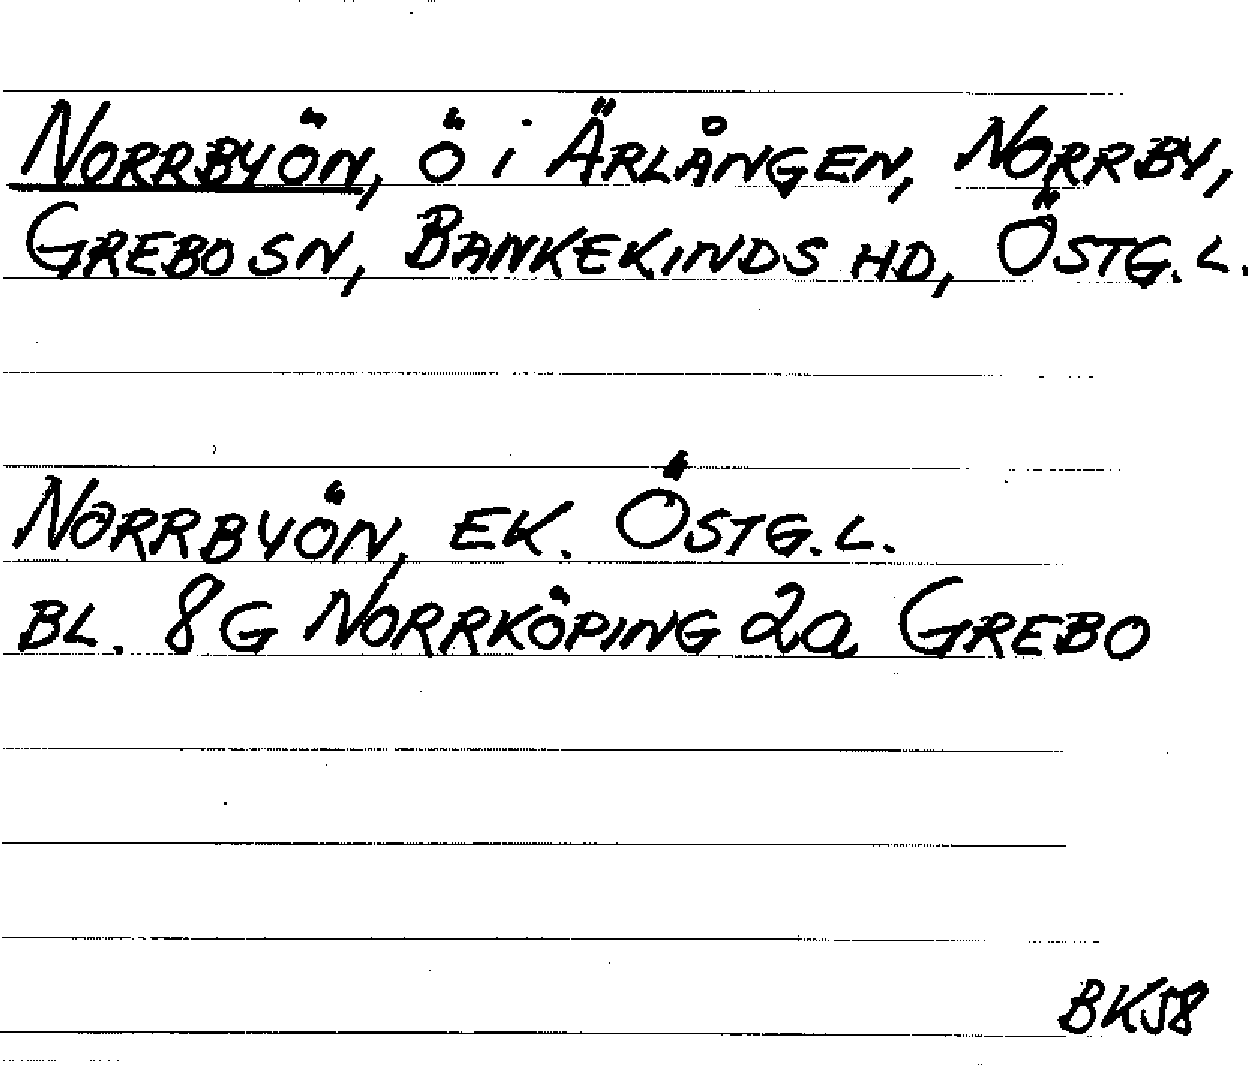 NORRBYÖN, Ö i ÄRLÅNGEN, NORRBY,
GREBO SN, BANKEKINDS HD, ÖSTG. L.
NORRBYÖN, EK. ÖSTG. L.
BL. 8G NORRKÖPING 2a GREBO
BK58